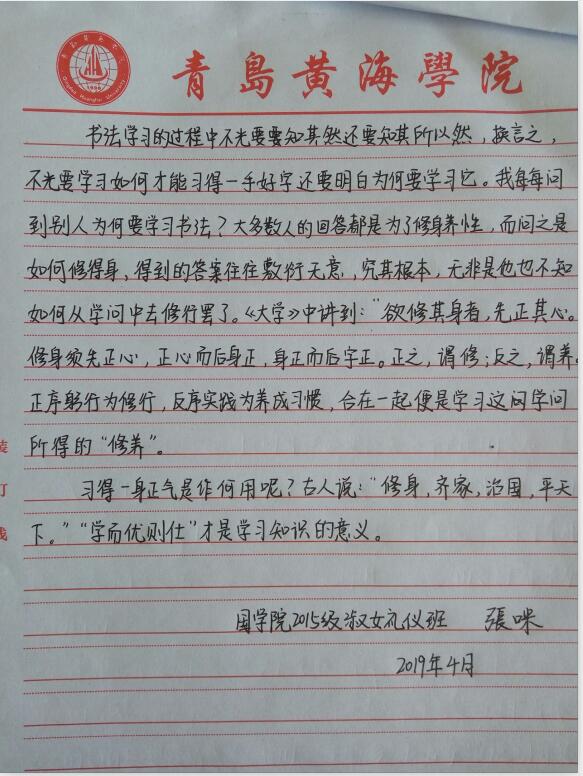 青島黄海學院
1996
Qingdao Huanghai University
书法学习的过程中不光要要知其然还要知其所以然，换言之，
不光要学习如何才能习得一手好字还要明白为何要学习它。我每每问
到别人为何要学习书法？大多数人的回答都是为了修身养性，而问之是
如何修得身，得到的答案往往敷衍无意，究其根本，无非是他也不知
如何从学问中去修行罢了。《大学》中讲到：“欲修其身者，先正其心。
修身须先正心，正心而后身正，身正而后字正。正之，谓修；反之，谓养。
正序躬行为修行，反序实践为养成习惯，合在一起便是学习这问学问
所得的“修养”。
习得一身正气是作何用呢？古人说：“修身，齐家，治国，平天
下。”“学而优则仕”才是学习知识的意义。
国学院2015级淑女礼仪班 張咪
2019年4月
装
订
线